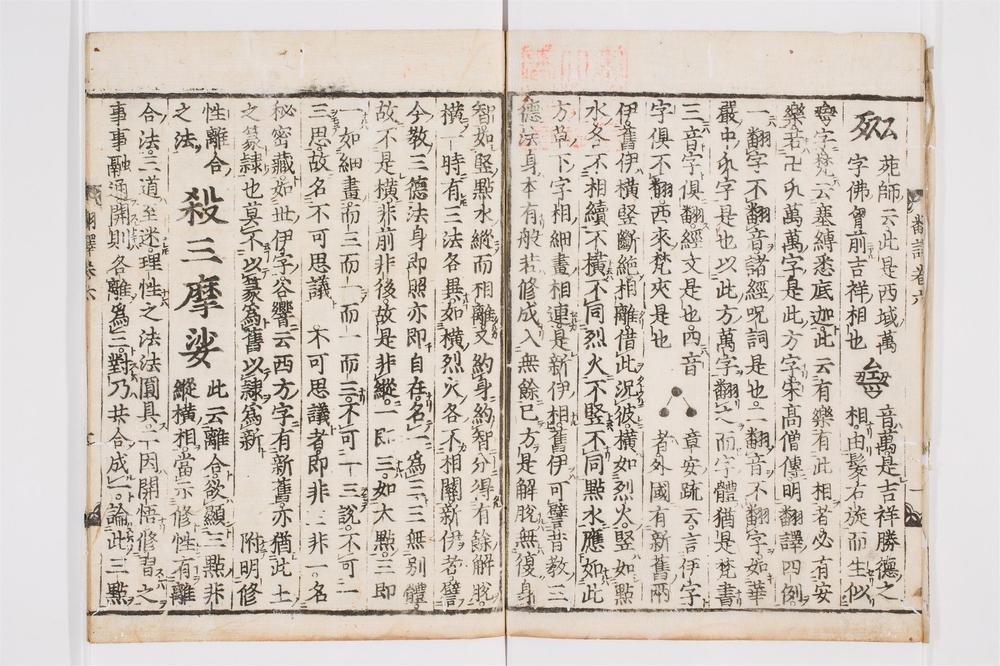 苑師云此是西域萬
字佛胷前吉祥相也
音萬是吉祥勝德之
相由髮右旋而生似
字梵云塞縛悉底迦此云有樂有此相者必有安
樂若卍卐萬萬字是此方字宋髙僧傳明翻譯四例
一翻字不翻音諸經呪詞是也二翻音不翻字如華
嚴中卐字是也以此方萬字翻之而字體猶是梵書
三音字俱翻經文是也四音
字俱不翻西來梵夾是也
章安疏云言伊字
者外國有新舊兩
伊舊伊橫竪斷絶相離借此況彼橫如烈火竪如點
水各不相續不橫不同烈火不竪不同點水應如此
方草下字相細畫相連是新伊相舊伊可譬昔教三
德法身本有般若修成入無餘已方是解脫無復身
智如竪點水縱而相離又約身約智分得有餘解脫
橫一時有三法各異如橫烈火各不相關新伊者譬
今教三德法身即照亦即自在名一爲三三無別體
故不是橫非前非後故是非縱一即三如大點三即
一如細畫而三而一而一而三不可一三說不可一
三思故名不可思議 不可思議者即非三非一名
秘密藏如世伊字谷響云西方字有新舊亦猶此土
之篆隷也莫不以篆爲舊以隷爲新 附明修
性離合
之法
殺三摩娑
此云離合欲顯三點非
縱橫相當示修性有離
合法三道至迷理性之法法圓具一因開悟修習之
事事融通開則各離爲三對乃共合成一論此三點
翻譯卷六